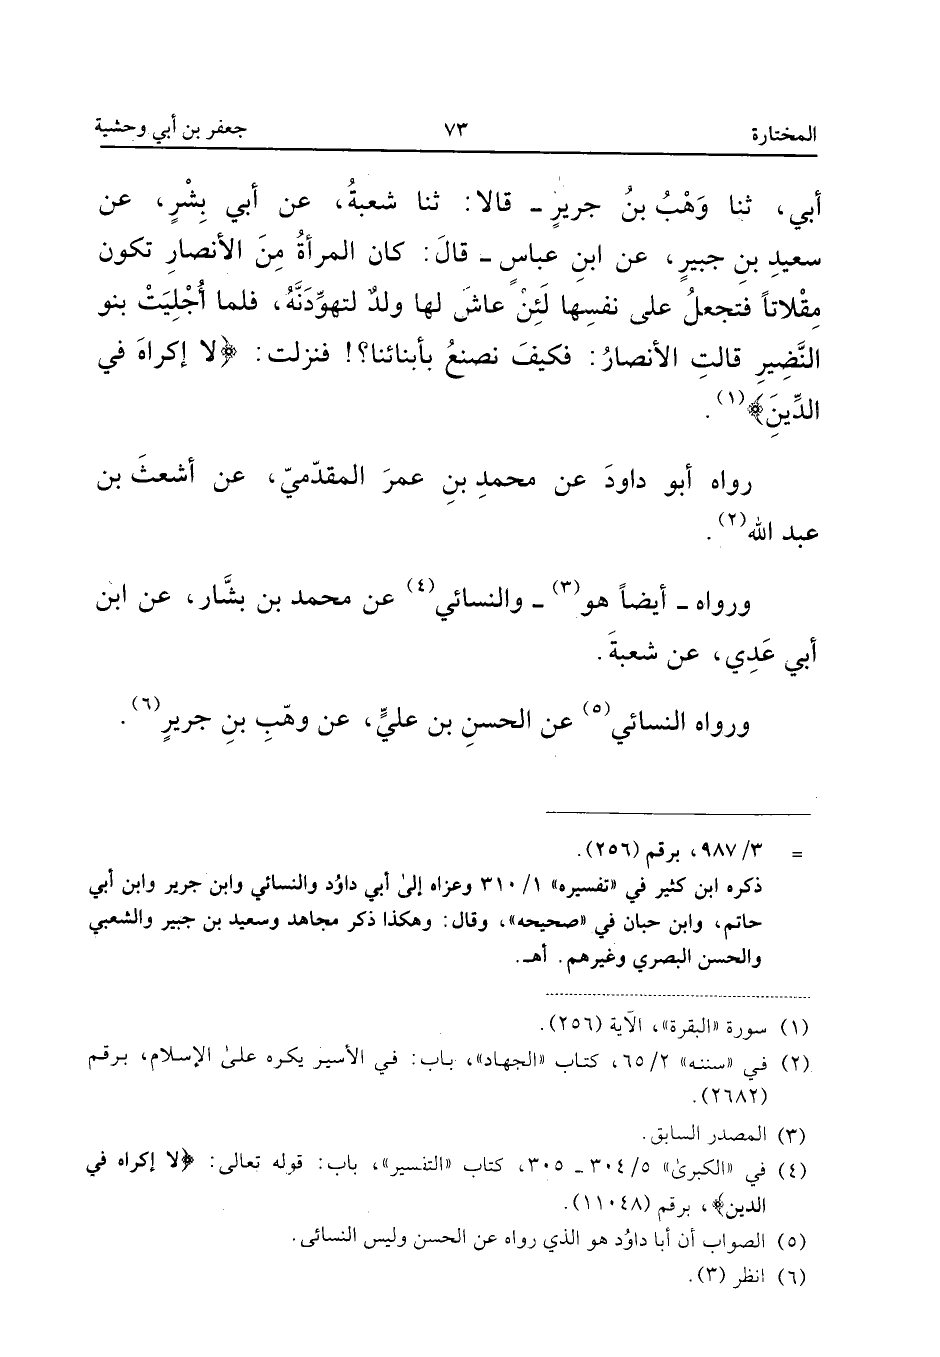 المختارة ٧٣ جعفر بن أبي وحشية
أبي، ثنا وَهْبُ بنُ جريرٍ ـ قالا: ثنا شعبةُ، عن أبي بِشْرٍ، عن
سعيدِ بنِ جبيرٍ، عن ابنِ عباسٍ ـ قالَ: كان المرأةُ مِنَ الأنصارِ تكون
مِقْلاتاً فتجعلُ على نفسِها لَئِنْ عاشَ لها ولدٌ لتهوِّدَنَّهُ، فلما أُجْلِيَتْ بنو
النَّضِيرِ قالتِ الأنصارُ: فكيفَ نصنعُ بأبنائنا؟! فنزلت: ﴿لا إكراهَ في
الدِّينِ﴾(١).
رواه أبو داودَ عن محمدِ بنِ عمرَ المقدّميّ، عن أشعثَ بن
عبد الله(٢).
ورواه ـ أيضاً هو(٣) ـ والنسائي(٤) عن محمد بن بشَّار، عن ابن
أبي عَدِي، عن شعبةَ.
ورواه النسائي(٥) عن الحسنِ بن عليٍّ، عن وهْبِ بنِ جريرٍ(٦).
= ٣/ ٩٨٧، برقم (٢٥٦).
ذكره ابن كثير في «تفسيره» ١/ ٣١٠ وعزاه إلىٰ أبي داوُد والنسائي وابن جرير وابن أبي
حاتم، وابن حبان في «صحيحه»، وقال: وهكذا ذكر مجاهد وسعيد بن جبير والشعبي
والحسن البصري وغيرهم. أهـ.
(١) سورة «البقرة»، الآية (٢٥٦).
(٢) في «سننه» ٢/ ٦٥، كتاب «الجهاد»، باب: في الأسير يكره علىٰ الإسلام، برقم
(٢٦٨٢).
(٣) المصدر السابق.
(٤) في «الكبرىٰ» ٥/ ٣٠٤ ـ ٣٠٥، كتاب «التفسير»، باب: قوله تعالى: ﴿لا إكراه في
الدين﴾، برقم (١١٠٤٨).
(٥) الصواب أن أبا داوُد هو الذي رواه عن الحسن وليس النسائى.
(٦) انظر (٣).